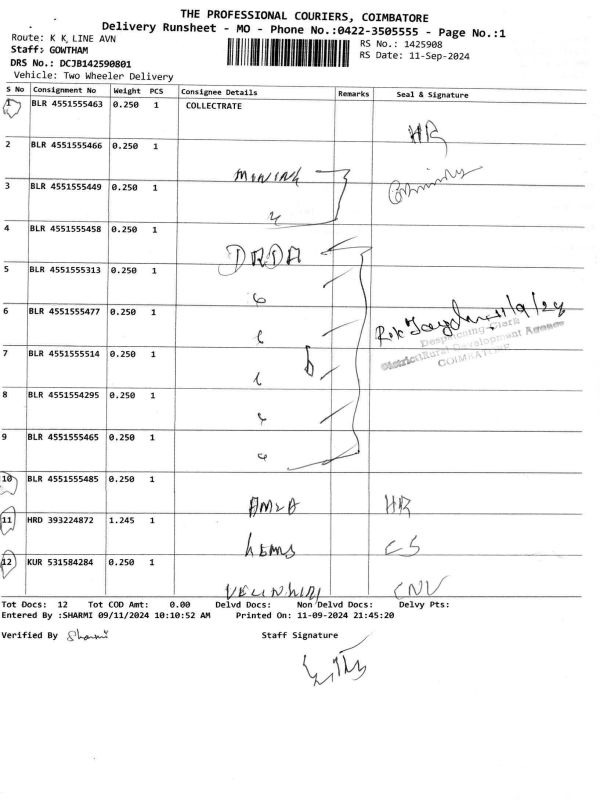 THE PROFESSIONAL COURIERS, COIMBATORE
Delivery Runsheet - MO - Phone No.:0422-3505555 - Page No.:1
Route: K K LINE AVN
RS No.: 1425908
Staff: GOWTHAM
RS Date: 11-Sep-2024
DRS No.: DCJB142590801
Vehicle: Two Wheeler Delivery
S No Consignment No Weight PCS Consignee Details Remarks Seal & Signature
1 BLR 4551555463 0.250 1 COLLECTRATE
HR
2 BLR 4551555466 0.250 1
MINING
3 BLR 4551555449 0.250 1
4 BLR 4551555458 0.250 1
DRDA
5 BLR 4551555313 0.250 1
6 BLR 4551555477 0.250 1
11/9/24
Despatching Clerk
District Rural Development Agency
COIMBATORE
7 BLR 4551555514 0.250 1
8 BLR 4551554295 0.250 1
9 BLR 4551555465 0.250 1
10 BLR 4551555485 0.250 1
HR
11 HRD 393224872 1.245 1
CS
12 KUR 531584284 0.250 1
Tot Docs: 12 Tot COD Amt: 0.00 Delvd Docs: Non Delvd Docs: Delvy Pts:
Entered By :SHARMI 09/11/2024 10:10:52 AM Printed On: 11-09-2024 21:45:20
Verified By Sharmi Staff Signature